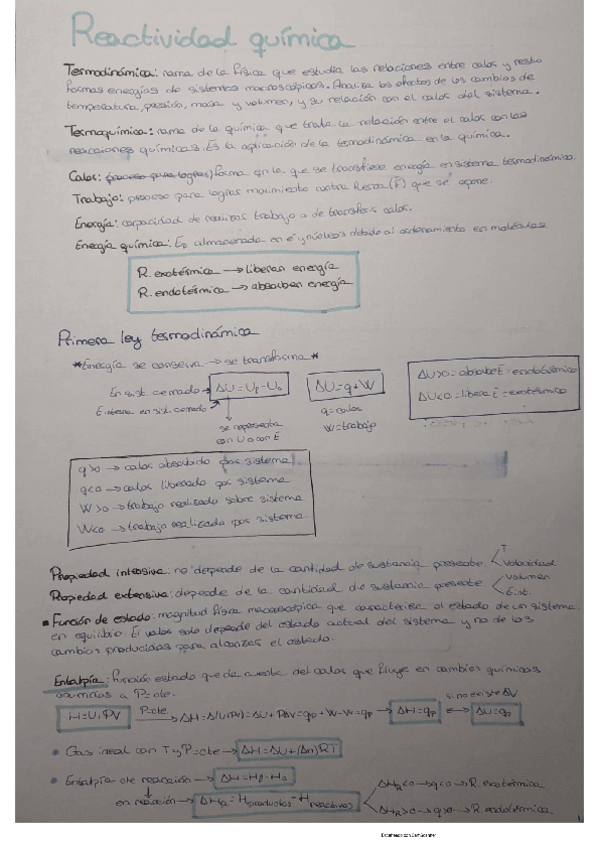 Reactividad química
Termodinámica: rama de la física que estudia las relaciones entre calor y resto
formas energías de sistemas macroscópicos. Analiza los efectos de los cambios de
temperatura, presión, masa y volumen, y su relación con el calor del sistema.
Termoquímica: rama de la química que trata la relación entre el calor con las
reacciones químicas. Es la aplicación de la termodinámica en la química.
Calor: (proceso para lograr) forma en la que se transfiere energía en sistema termodinámico.
Trabajo: proceso para lograr movimiento contra (F) que se opone.
Energía: capacidad de realizar trabajo o de transferir calor.
Energía química: almacenada en e⁻ y núcleos debido al ordenamiento en moléculas.
R. exotérmica → liberan energía
R. endotérmica → absorben energía
Primera ley termodinámica
*Energía se conserva → se transforma*
En sist. cerrado → ΔU = Uf - U₀
ΔU = q + W
ΔU>0 = absorbe E = endotérmico
ΔU<0 = libera E = exotérmico
E interna en sist. cerrado
q = calor
W = trabajo
se representa
con U o con E
q>0 → calor absorbido por sistema
q<0 → calor liberado por sistema
W>0 → trabajo realizado sobre sistema
W<0 → trabajo realizado por sistema
Propiedad intensiva: no depende de la cantidad de sustancia presente. T Velocidad
Propiedad extensiva: depende de la cantidad de sustancia presente. Volumen E int.
Función de estado: magnitud física macroscópica que caracteriza al estado de un sistema
en equilibrio. El valor solo depende del estado actual del sistema y no de los
cambios producidos para alcanzar el estado.
Entalpía: función estado que da cuenta del calor que fluye en cambios químicos
ocurridos a P=cte.
si no existe ΔV
H = U + PV P=cte → ΔH = Δ(U+PV) = ΔU + PΔV = qp + W - W = qp → ΔH = qp ↔ ΔU = qp
Gas ideal con T y P=cte → ΔH = ΔU + (Δn)RT
Entalpía de reacción →
en reacción → ΔHR = Hproductos - Hreactivos
ΔHR<0 → q<0 → R. exotérmica
ΔHR>0 → q>0 → R. endotérmica.